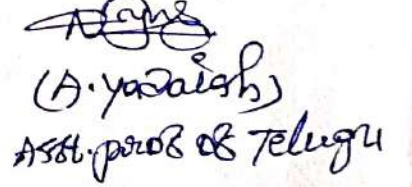 (A. Yadaiah)
Asst. prof of Telugu